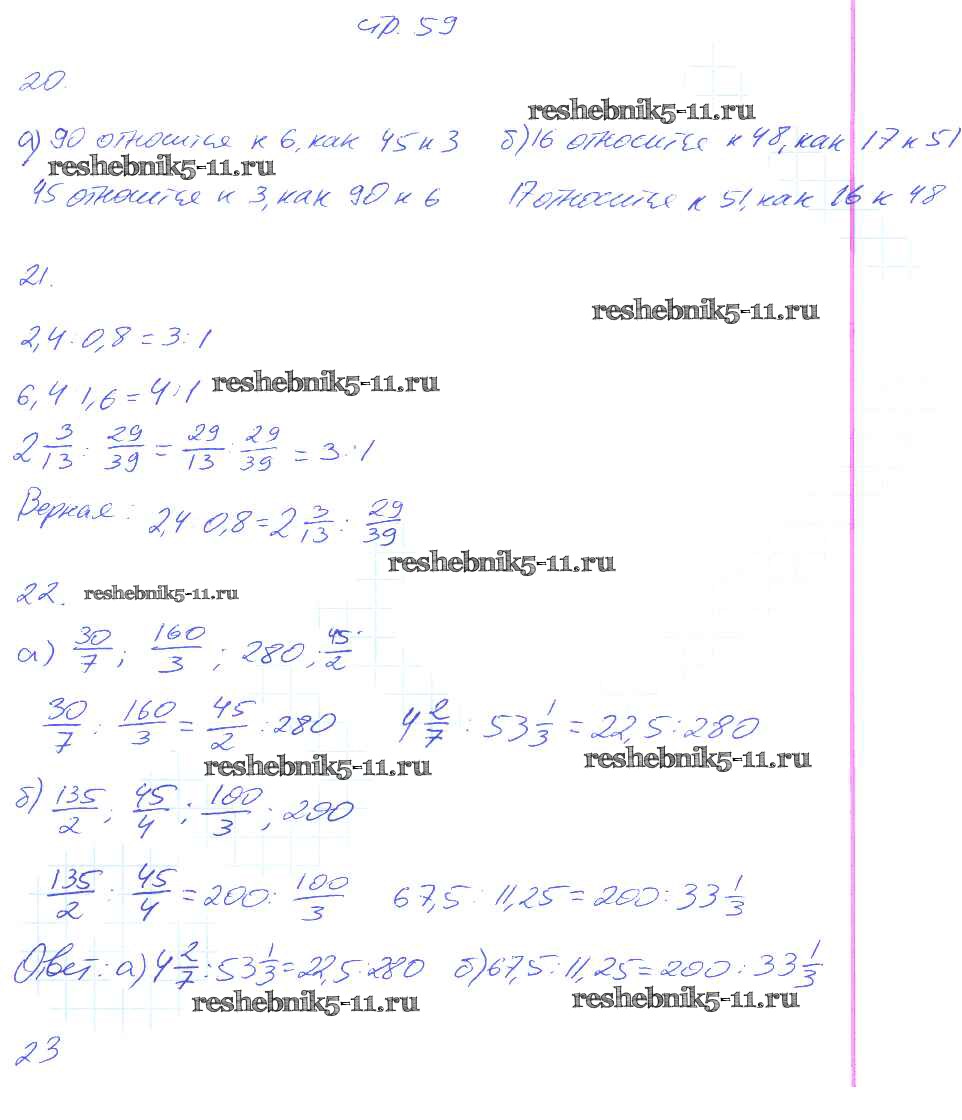 стр. 59
20.
reshebnik5-11.ru
а) 90 относится к 6, как 45 к 3 б) 16 относится к 48, как 17 к 51
reshebnik5-11.ru
45 относится к 3, как 90 к 6 17 относится к 51, как 16 к 48
21.
reshebnik5-11.ru
2,4 : 0,8 = 3 : 1
6,4 : 1,6 = 4 : 1 reshebnik5-11.ru
2 3/13 : 29/39 = 29/13 : 29/39 = 3 : 1
Верная : 2,4 0,8 = 2 3/13 : 29/39
reshebnik5-11.ru
22. reshebnik5-11.ru
а) 30/7 ; 160/3 ; 280 ; 45/2
30/7 : 160/3 = 45/2 : 280 4 2/7 : 53 1/3 = 22,5 : 280
reshebnik5-11.ru reshebnik5-11.ru
б) 135/2 ; 45/4 ; 100/3 ; 200
135/2 : 45/4 = 200 : 100/3 67,5 : 11,25 = 200 : 33 1/3
Ответ : а) 4 2/7 : 53 1/3 = 22,5 : 280 б) 67,5 : 11,25 = 200 : 33 1/3
reshebnik5-11.ru reshebnik5-11.ru
23